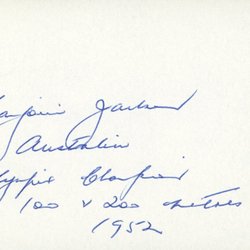 Marjorie Jackson
Australia
Olympic Champion
100 & 200 metres
1952